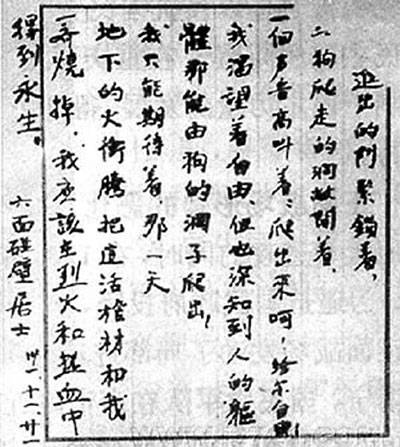 進出的門緊鎖着，
狗爬走的洞敞開着，
一個声音高叫着：爬出來呵！给尔自由！
我渴望着自由、但也深知到人的軀
體那能由狗的洞子爬出！
我只能期待着，那一天
地下的火衝騰把這活棺材和我
一齊燒掉，我应該在烈火和热血中
得到永生。
六面碰壁居士 卅一.十一.廿一